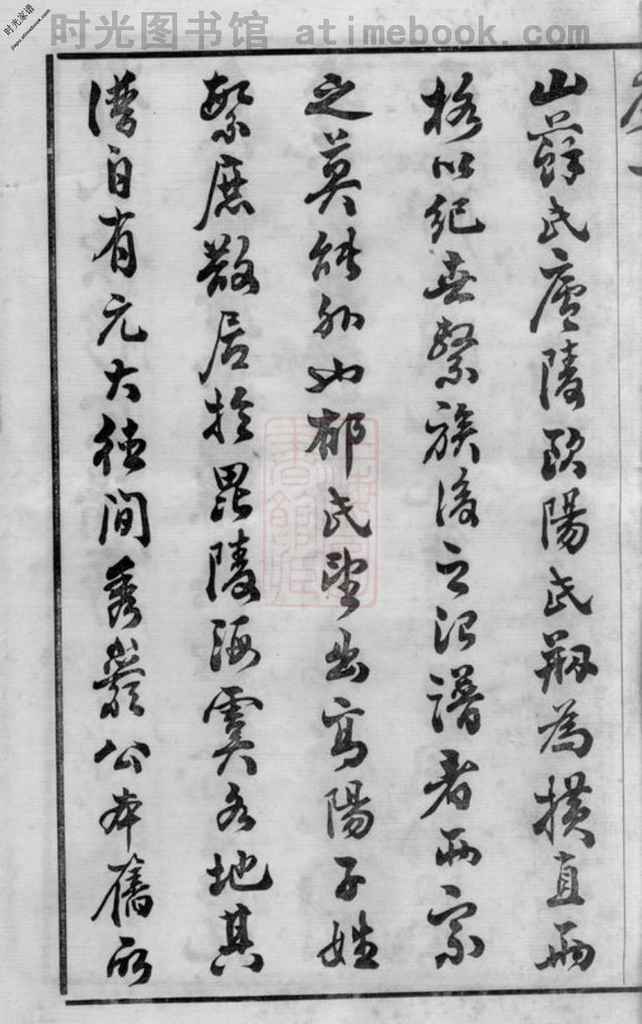 时光图书馆 atimebook.com
时光家谱
山蘇氏廬陵歐陽氏剏為橫直兩
格以紀世繫族後之治譜者兩宗
之莫能外也郁氏望出高陽子姓
繁庶散居於毘陵海虞各地其
譜自有元大德間秀巖公本舊所